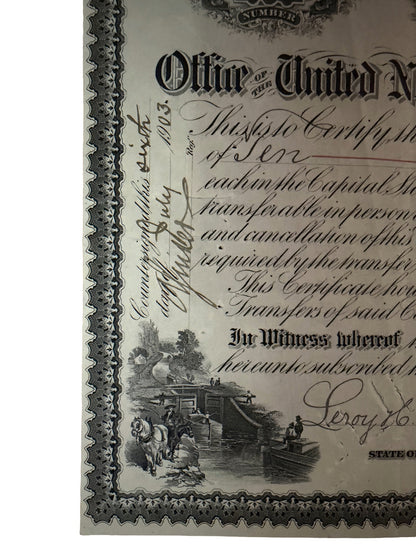 NUMBER
Office OF THE United N
This is to Certify th
of Ten
each in the Capital S
transferable in person
and cancellation of this
required by the transfer
This Certificate ho
Transfers of said C
In Witness whereof
hereunto subscribed
Leroy H.
STATE OF
Countersigned this sixth
day July 1903.
Reg